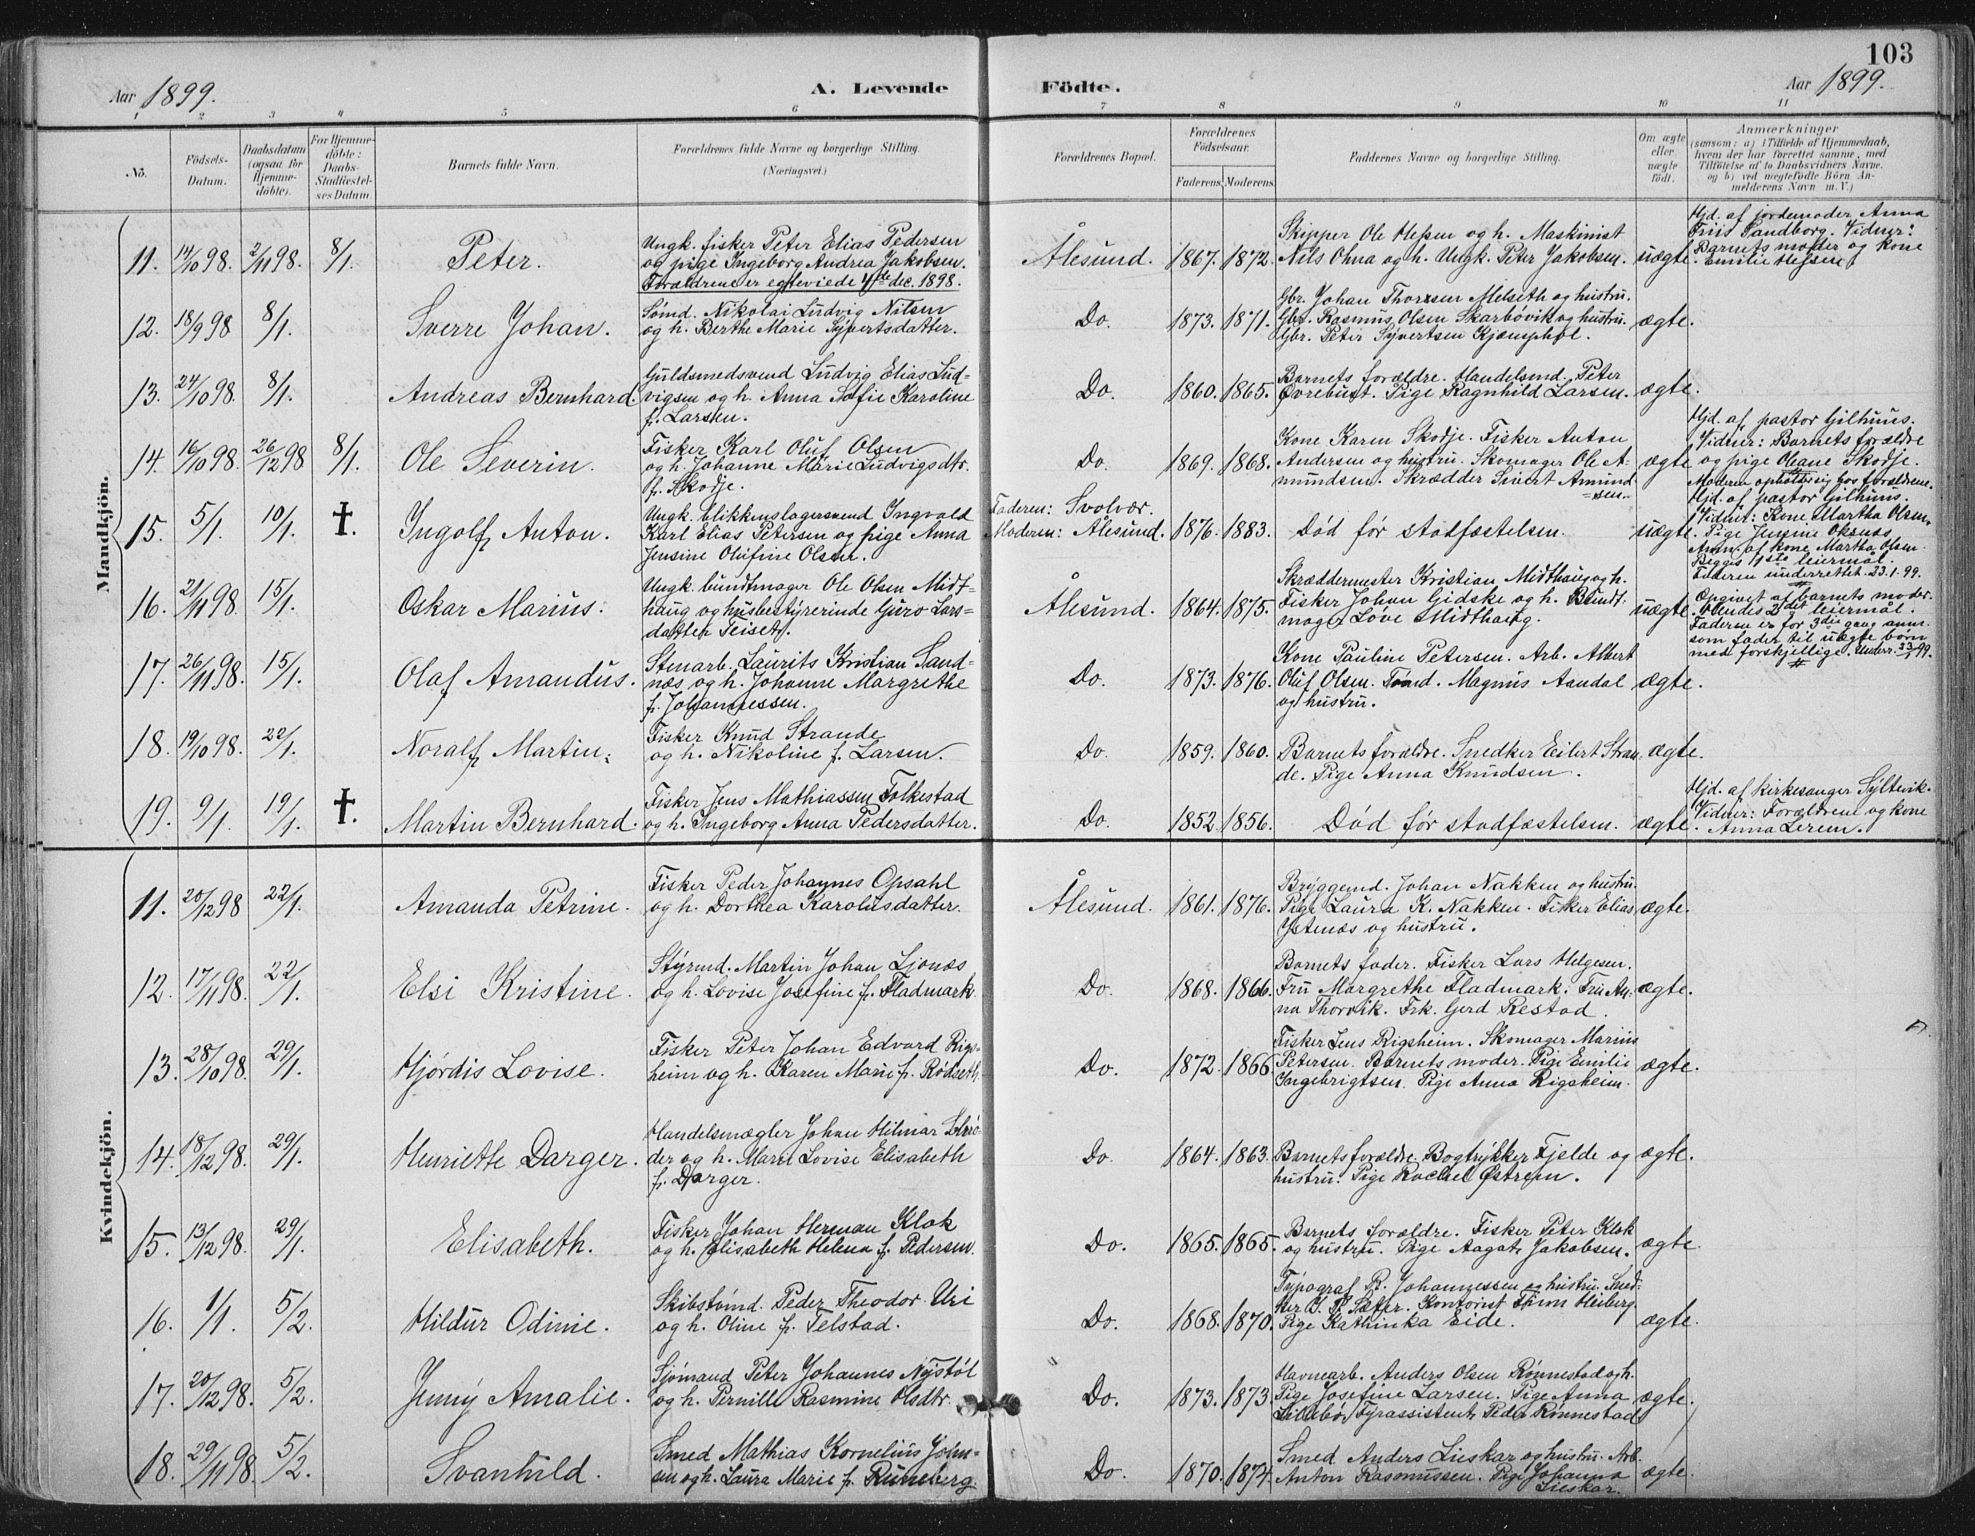 103
Aar 1899. A. Levende Födte. Aar 1899.
1 2 3 4 5 6 7 8 9 10 11
No. Födsels-Datum. Daabsdatum (ogsaa for Hjemmedöbte). For Hjemmedöbte: Daabs-Stadfæstelses Datum. Barnets fulde Navn. Forældrenes fulde Navne og borgerlige Stilling. (Næringsvei.) Forældrenes Bopæl. Forældrenes Födselsaar. Faderens. Moderens. Faddernes Navne og borgerlige Stilling. Om ægte eller uægte födt. Anmærkninger (saasom: a) i Tilfælde af Hjemmedaab, hvem der har forrettet samme, med Tilföielse af to Daabsvidners Navne. og b) ved uægtefödte Börn Anmelderens Navn m. V.)
Mandkjön.
11. 14/10 98. 2/11 98. 8/1. Peter.
Ungk. fisker Peter Elias Pedersen
og pige Ingeborg Andrea Jakobsen.
Forældrene er egteviede 4de dec. 1898.
Ålesund. 1867. 1872.
Skipper Ole Hessen og h. Maskinist
Nils Ohna og h. Ungk. Peter Jakobsen.
uægte.
Hjd. af jordemoder Anna
Friis Sandborg. Vidner:
Barnets moder og kone
Emilie Hessen.
12. 18/9 98 8/1. Sverre Johan.
Sømd. Nikolai Ludvig Nilsen
og h. Berthe Marie Syvertsdatter.
Do. 1873. 1871.
Gbr. Johan Thorsen Melseth og hustru.
Gbr. Rasmus Olsen Skarbövik og hustru.
Gbr. Peter Syvertsen Kjæmphol.
ægte.
13. 24/10 98. 8/1. Andreas Bernhard.
Guldsmedsvend Ludvig Elias Lud-
vigsen og h. Anna Sofie Karoline
f. Larsen.
Do. 1860. 1865.
Barnets forældre. Handelsmd. Peter
Øvrebust. Pige Ragnhild Larsen.
ægte.
14. 16/10 98. 26/12 98 8/1. Ole Severin.
Fisker Karl Oluf Olsen
og h. Johanne Marie Ludvigsdtr.
f. Skodje.
Do. 1869. 1868.
Kone Karen Skodje. Fisker Anton
Andersen og hustru. Skomager Ole A-
mundsen. Skrædder Sivert Amund
=sen.
ægte
Hjd. af pastor Gilhuus.
Vidner: Barnets forældre
og pige Oleane Skodje.
Moderen opholder sig hos forældrene.
15. 5/1. 10/1. †. Ingolf Anton.
Ungk. blikkenslagersvend Ingvald
Karl Elias Petersen og pige Anna
Jensine Olufine Olsen.
Faderen: Svolvær.
Moderen: Ålesund. 1876. 1883. Død før stadfæstelsen. uægte.
Hjd. af pastor Gilhuus.
Vidner: Kone Martha Olsen,
Pige Jensine Oksnes
Anm. af kone Martha Olsen.
Begges 1ste leiermål.
Faderen underrettet. 23.1.99.
16. 21/11 98. 15/1. Oskar Marius.
Ungk. bundtmager Ole Olsen Midt-
haug og husbestyrerinde Guro Lars-
datter Teiset.
Ålesund. 1864. 1875.
Skræddermester Kristian Midthaug og h.
Fisker Johan Gidske og h. Bundt-
mager Love Midthaug.
uægte.
Opgivet af barnets moder.
Hendes 2det leiermål.
Faderen er for 3die gang anm.
som fader til uægte børn
med forskjellige. Underr. 23/1 99.
17. 26/11 98. 15/1. Olaf Amandus.
Stenarb. Laurits Kristian Sand-
næs og h. Johanne Margrethe
f. Johannessen.
Do. 1873. 1876.
Kone Pauline Petersen. Arb. Albert
Oluf Olsen. Tømd. Magnus Aandal
og hustru.
ægte.
18. 19/10 98. 22/1. Noralf Martin.
Fisker Knud Strande
og h. Nikoline f. Larsen.
Do. 1859. 1860.
Barnets forældre. Snedker Eilert Stran
de. Pige Anna Knudsen.
ægte.
19. 9/1. 19/1. †. Martin Bernhard.
Fisker Jens Mathiassen Folkestad
og h. Ingeborg Anna Pedersdatter.
Do. 1852. 1856. Død før stadfæstelsen. ægte.
Hjd. af kirkesanger Syltevik.
Vidner: Forældrene og kone
Anna Lerem.
Kvindekjön.
11. 20/12 98 22/1. Amanda Petrine.
Fisker Peder Johannes Opsahl
og h. Dorthea Karolusdatter.
Ålesund. 1861. 1876.
Bryggemd. Johan Nakken og hustru.
Pige Laura K. Nakken. Fisker Elias
Ystenæs og hustru.
ægte.
12. 17/11 98. 22/1. Elsi Kristine.
Styrmd. Martin Johan Ljonæs
og h. Lovise Josefine f. Fladmark.
Do. 1868. 1866.
Barnets fader. Fisker Lars Helgesen.
Fru Margrethe Fladmark. Fru An-
na Thorvik. Frk. Gerd Restad.
ægte.
13. 28/10 98. 29/1. Hjørdis Lovise.
Fisker Peter Johan Edvard Rigs-
heim og h. Karen Marie f. Rødseth.
Do. 1872. 1866.
Fisker Jens Rigsheim. Skomager Marius
Petersen. Barnets moder. Pige Emilie
Ingebrigtsen. Pige Anna Rigsheim.
ægte.
14. 18/12 98. 29/1. Henriette Darger.
Handelsmægler Johan Hilmar Schrö-
der og h. Marie Lovise Elisabeth
f. Darger.
Do. 1864. 1863.
Barnets forældre. Bogtrykker Fjelde og
hustru. Pige Rachel Østrem.
ægte.
15. 13/12 98. 29/1. Elisabeth.
Fisker Johan Herman Klok
og h. Elisabeth Helena f. Pedersen.
Do. 1865. 1865.
Barnets forældre. Fisker Peter Klok
og hustru. Pige Aagate Jakobsen.
ægte.
16. 1/1. 5/2. Hildur Odinie.
Skibstømd. Peder Theodor Uri
og h. Oline f. Telstad.
Do. 1868. 1870.
Typograf B. Johannessen og hustru. Sned-
ker I. P. Sæter. Kontorist Heiberg.
Pige Kathinka Eide.
ægte.
17. 20/12 98. 5/2. Jenny Amalie.
Sjømand Peter Johannes Nystøl
og h. Pernille Rasmine Olsdtr.
Do. 1873. 1873.
Havnearb. Anders Olsen Rønnestad og h.
Pige Josefine Larsen. Pige Anna
Fyrassistent Peder Rønnestad
ægte.
18. 29/11 98. 5/2. Svanhild.
Smed Mathias Kornelius John-
sen og h. Laura Marie f. Runeberg.
Do. 1870. 1874.
Smed Anders Lieskar og hustru. Arb.
Anton Rasmussen. Pige Johanna
Lieskar.
ægte.